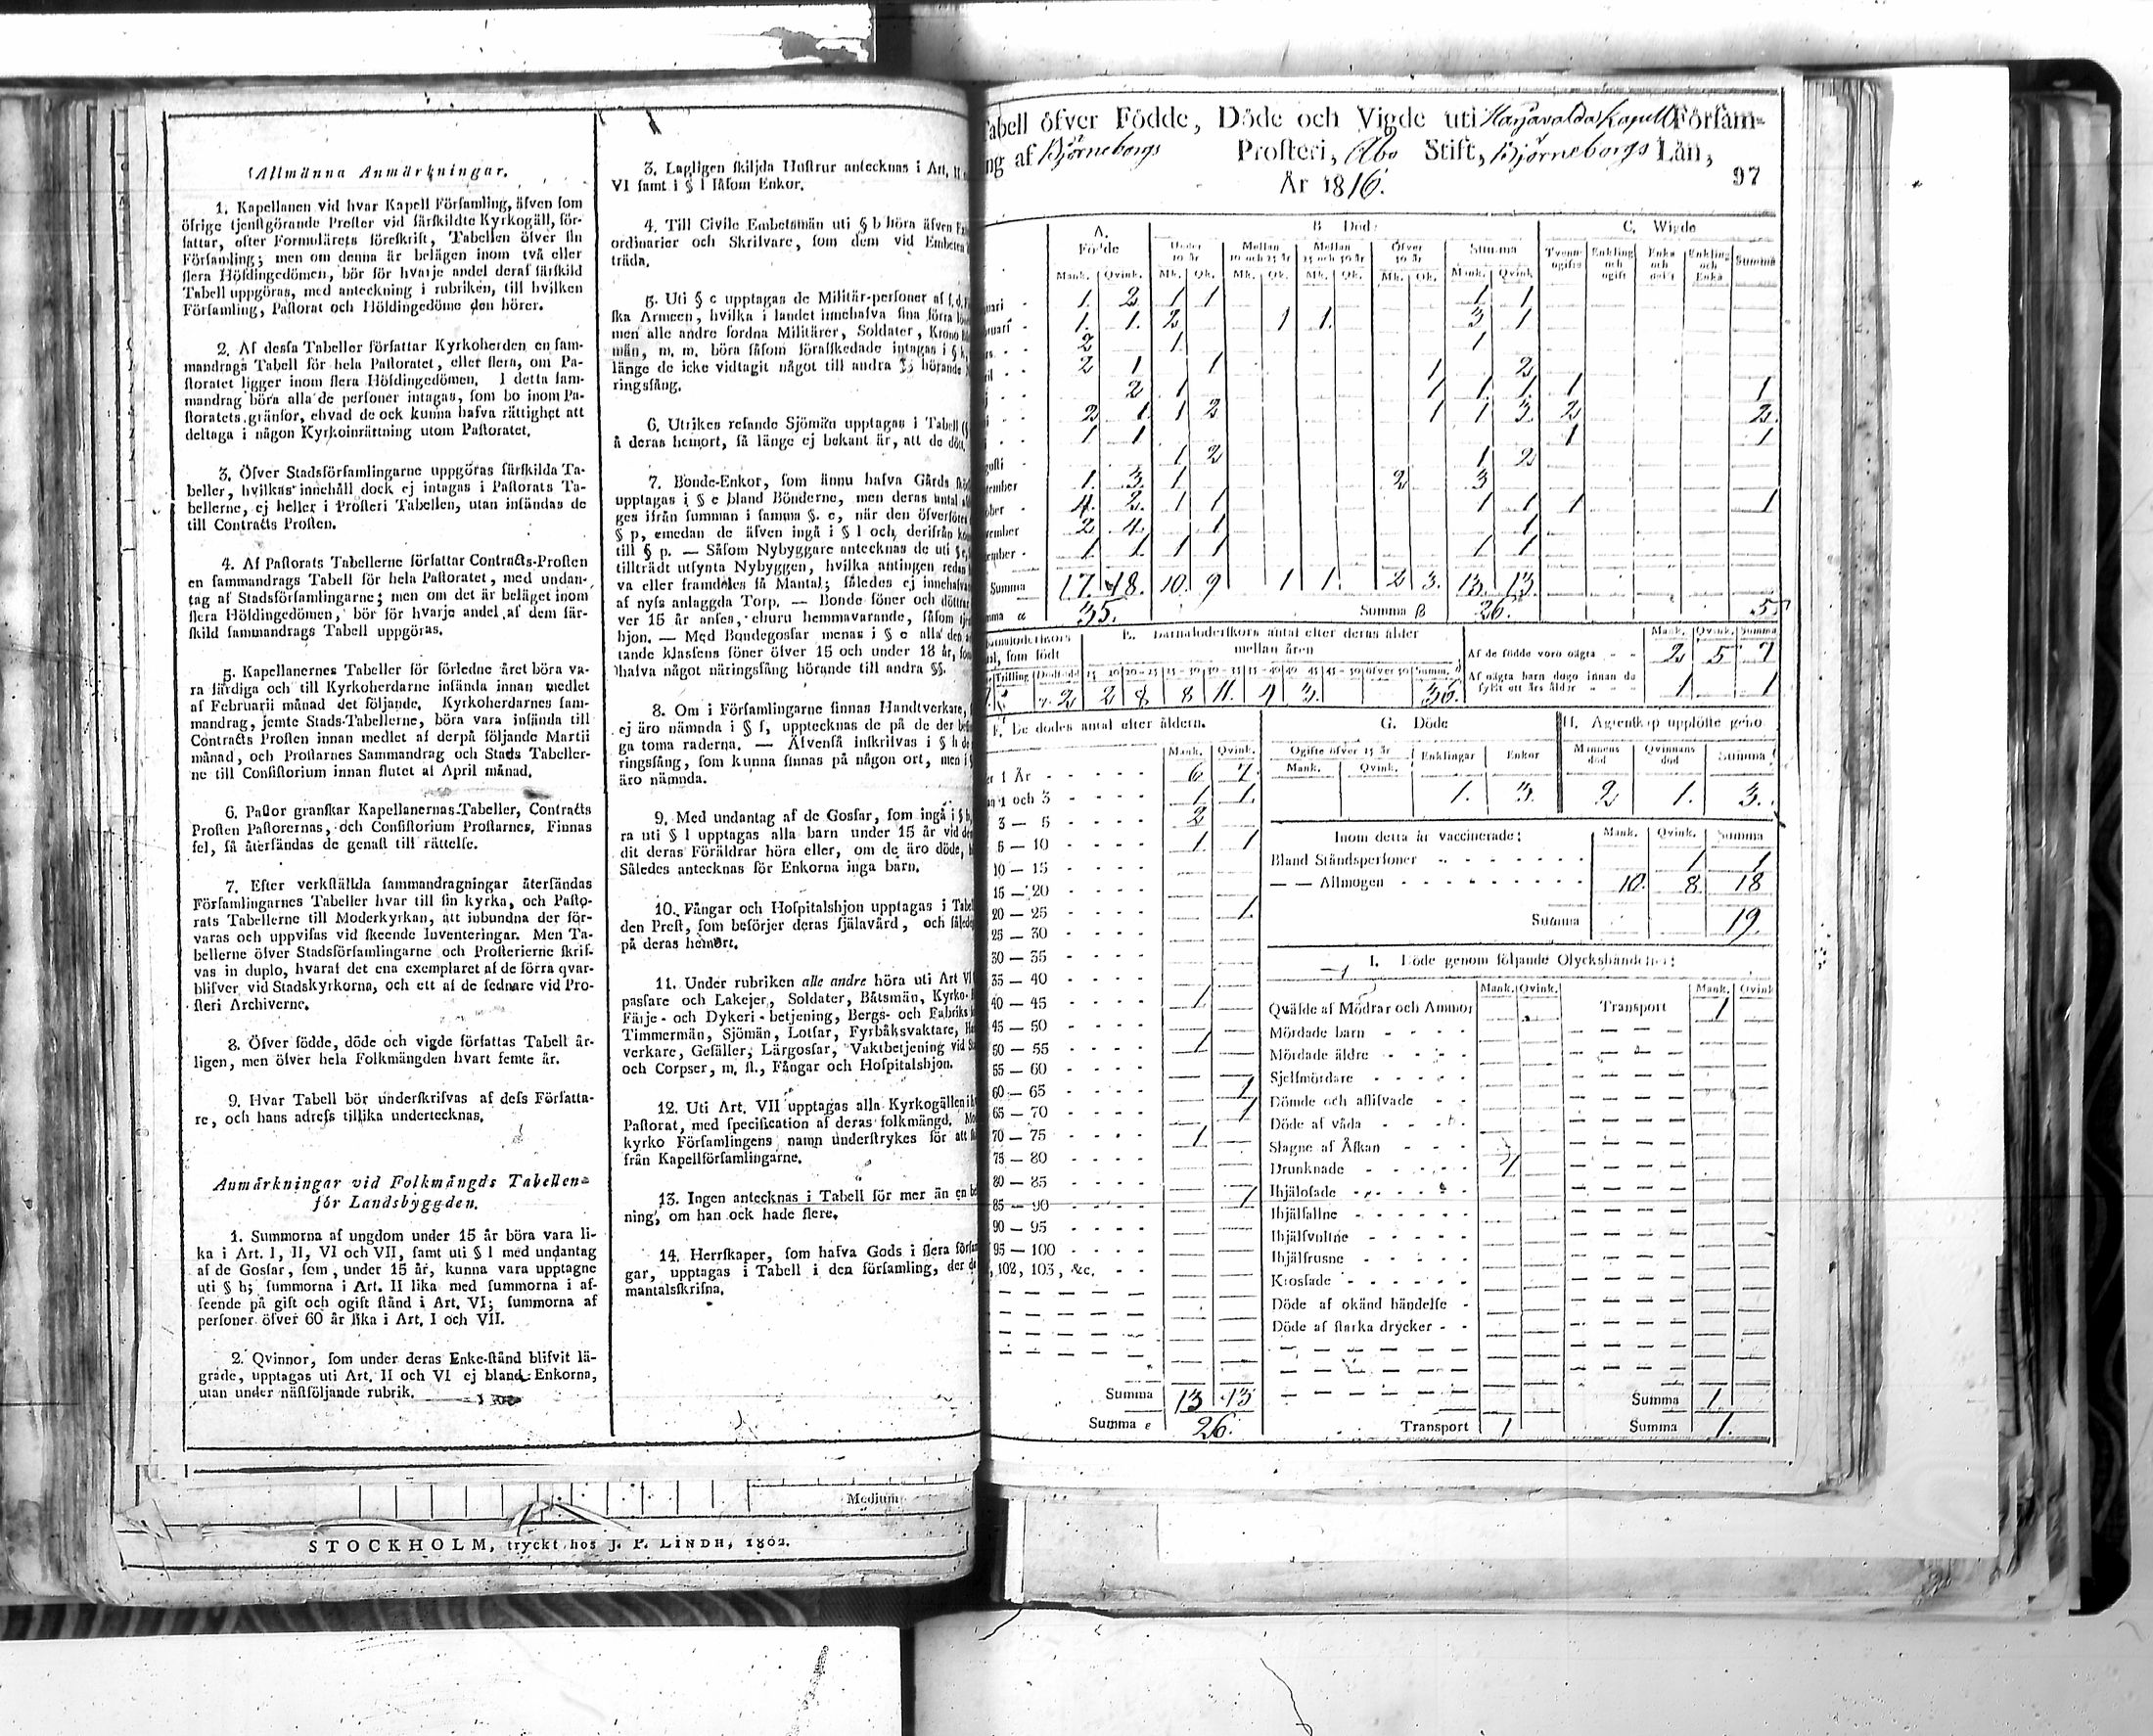 Allmänna Anmärkningar.
1. Kapellanen vid hvar Kapell Församling, äfven som
öfrige tjenstgörande Prester vid särskildte Kyrkogäll, för-
fattar, efter Formulärets föreskrift, Tabellen öfver sin
Församling; men om denna är belägen inom två eller
flera Höfdingedömen, bör för hvarje andel deraf särskild
Tabell uppgöras, med anteckning i rubriken, till hvilken
Församling, Pastorat och Höfdingedöme den hörer.
2. Af dessa Tabeller författar Kyrkoherden en sam-
mandrags Tabell för hela Pastoratet, eller flera, om Pa-
storatet ligger inom flera Höfdingedömen. I detta sam-
mandrag böra alla de personer intagas, som bo inom Pa-
storatets gränsor, ehvad de ock kunna hafva rättighet att
deltaga i någon Kyrkoinrättning utom Pastoratet.
3. Öfver Stadsförsamlingarne uppgöras särskilda Ta-
beller, hvilkas innehåll dock ej intagas i Pastorats Ta-
bellerne, ej heller i Prosteri Tabellen, utan insändas de
till Contracts Prosten.
4. Af Pastorats Tabellerne författar Contracts-Prosten
en sammandrags Tabell för hela Pastoratet, med undan-
tag af Stadsförsamlingarne; men om det är beläget inom
flera Höfdingedömen, bör för hvarje andel af dem sär-
skild sammandrags Tabell uppgöras.
5. Kapellanernes Tabeller för förledne året böra va-
ra färdiga och till Kyrkoherdarne insända innan medlet
af Februarii månad det följande. Kyrkoherdarnes sam-
mandrag, jemte Stads-Tabellerne, böra vara insända till
Contracts Prosten innan medlet af derpå följande Martii
månad, och Prostarnes Sammandrag och Stads Tabeller-
ne till Consistorium innan slutet af April månad.
6. Pastor granskar Kapellanernas Tabeller, Contracts
Prosten Pastorernas, och Consistorium Prostarnes. Finnas
fel, så återsändas de genast till rättelse.
7. Efter verkställda sammandragningar återsändas
Församlingarnes Tabeller hvar till sin kyrka, och Pasto-
rats Tabellerne till Moderkyrkan, att inbundna der för-
varas och uppvisas vid skeende Inventeringar. Men Ta-
bellerne öfver Stadsförsamlingarne och Prosterierne skrif-
vas in duplo, hvaraf det ena exemplaret af de förra qvar-
blifver vid Stadskyrkorna, och ett af de sednare vid Pro-
steri Archiverne.
8. Öfver födde, döde och vigde författas Tabell år-
ligen, men öfver hela Folkmängden hvart femte år.
9. Hvar Tabell bör underskrifvas af dess Författa-
re, och hans adress tillika undertecknas.
Anmärkningar vid Folkmängds Tabellen
för Landsbyggden.
1. Summorna af ungdom under 15 år böra vara li-
ka i Art. I, II, VI och VII, samt uti § l med undantag
af de Gossar, som, under 15 år, kunna vara upptagne
uti § h; summorna i Art. II lika med summorna i af-
seende på gift och ogift stånd i Art. VI; summorna af
personer öfver 60 år lika i Art. I och VII.
2. Qvinnor, som under deras Enke-stånd blifvit lä-
grade, upptagas uti Art. II och VI ej bland Enkorna,
utan under nästföljande rubrik.
3. Lagligen skiljda Hustrur antecknas i Art. II
VI samt i § l såsom Enkor.
4. Till Civile Embetsmän uti § b höra äfven
ordinarier och Skrifvare, som dem vid Embeten
träda.
5. Uti § c upptagas de Militär-personer af
ska Armeen, hvilka i landet innehafva sina förra
men alle andre fordna Militärer, Soldater, Krono
män, m. m. böra såsom förafskedade intagas i §
länge de icke vidtagit något till andra §§ hörande
ringsfång.
6. Utrikes resande Sjömän upptagas i Tabell
å deras hemort, så länge ej bekant är, att de dött.
7. Bonde-Enkor, som ännu hafva Gårds
upptagas i § e bland Bönderne, men deras antal
ges ifrån summan i samma §. e, när den öfverföres
§ p, emedan de äfven ingå i § l och, derifrån
till § p. — Såsom Nybyggare antecknas de uti §
tillträdt utsynta Nybyggen, hvilka antingen redan
va eller framdeles få Mantal; således ej innehafva
af nyss anlaggda Torp. — Bonde söner och döttrar
ver 15 år anses, ehuru hemmavarande, såsom
hjon. — Med Bondegossar menas i § e alla den
tande klassens söner öfver 15 och under 18 år,
hafva något näringsfång hörande till andra §§.
8. Om i Församlingarne finnas Handtverkare,
ej äro nämnda i § f, upptecknas de på de der
ga toma raderna. — Älvenså inskrifvas i § h
ringsfång, som kunna finnas på någon ort, men
äro nämnda.
9. Med undantag af de Gossar, som ingå i §
ra uti § l upptagas alla barn under 15 år vid
dit deras Föräldrar höra eller, om de äro döde,
Således antecknas för Enkorna inga barn.
10. Fångar och Hospitalshjon upptagas i
den Prest, som besörjer deras själavård, och
på deras hemort.
11. Under rubriken alle andre höra uti Art VI
passare och Lakejer, Soldater, Båtsmän, Kyrko-
Färje- och Dykeri-betjening, Bergs- och Fabriks
Timmermän, Sjömän, Lotsar, Fyrbåksvaktare,
verkare, Gesäller, Lärgossar, Vaktbetjening vid
och Corpser, m. fl., Fångar och Hospitalshjon.
12. Uti Art. VII upptagas alla Kyrkogällen
Pastorat, med specification af deras folkmängd.
kyrko Församlingens namn understrykes för att
från Kapellförsamlingarne.
13. Ingen antecknas i Tabell för mer än en
ning, om han ock hade flere.
14. Herrskaper, som hafva Gods i flera
gar, upptagas i Tabell i den församling, der
mantalsskrifna.
Medium
STOCKHOLM, tryckt hos J. P. LINDH, 1802.
Tabell öfver Födde, Döde och Vigde uti Harjavalda Kapell Församling
af Björneborgs Prosteri, Åbo Stift, Björneborgs Län,
År 1816. 97
A. Födde B Döde C. Wigde
Under 10 år Mellan 10 och 25 år Mellan Öfver Summa Tvenne ogifte Enkling och ogift Enka och Enkling och Enka Summa
Mank. Qvink. Mk. Qk. Mk. Qk. Mk. Qk. Mk. Qk. Mank. Qvink.
1. 2 1 1 1 1
1. 1. 2 1 1. 3 1
2 1 1
2 1 1 1 2
2 1 1 1 1 1 1
2 1 1 2 1 1 3 2 2
1 1 1 1
1 2 1 2
tember 1. 3 1 2 3
ober 4. 2. 1 1 1 1 1 1
vember 2 4. 1 1
ember 1. 1. 1 1 1 1
Summa 17. 18. 10. 9 1 1. 2 3. 13. 13.
35. Summa β 26. 5.
E. Barnaföderskors antal efter deras ålder
mellan åren
som födt
Trilling Dödfödd Öfver 50 Summa
2 2 8 8 11. 4 3. 36.
Mank. Qvink. Summa
Af de födde voro oägta 2 5 7
Af oägta barn dogo innan de
fyllt ett års ålder 1 1
F. De dödes antal efter åldern.
Mank. Qvink.
1 År 6 7.
1 och 3 1 1.
3 — 5 2
5 — 10 1 1
10 — 15
15 — 20
20 — 25 1.
25 — 30
30 — 35
35 — 40
40 — 45 1.
45 — 50
50 — 55 1
55 — 60
60 — 65 1
65 — 70 1
70 — 75 1.
75 — 80
80 — 85
85 — 90 1
90 — 95
95 — 100
102, 103, &c.
Summa 13 13
Summa e 26.
G. Döde
Ogifte öfver 15 år Enklingar Enkor
Mank. Qvink.
1. 3.
H. Agtenskap upplöste geno
Mannens död Qvinnans död Summa
2 1. 3.
Inom detta år vaccinerade: Mank. Qvink. Summa
Bland Ståndspersoner 1 1
— — Allmogen 10. 8. 18
Summa 19.
I. Döde genom följande Olyckshändelser:
Mank. Qvink. Mank. Qvink
Qväfde af Mödrar och Ammor Transport 1
Mördade barn
Mördade äldre
Sjelfmördare
Dömde och aflifvade
Döde af våda
Slagne af Åskan
Drunknade 1.
Ihjälosade
Ihjälfallne
Ihjälsvultne
Ihjälfrusne
Krossade
Döde af okänd händelse
Döde af starka drycker
Summa 1.
Transport 1 Summa 1.